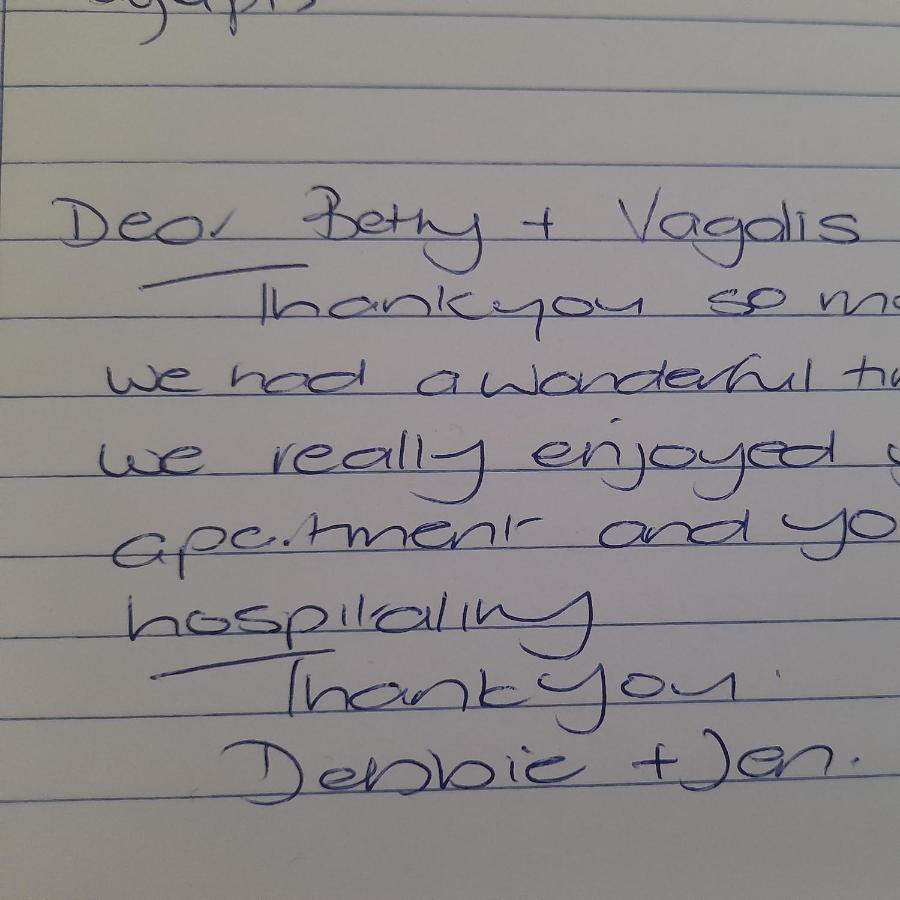 Dear Betty + Vagalis
Thankyou so
we had a wonderful
we really enjoyed
apartment and
hospitality
Thankyou.
Debbie + Jen.